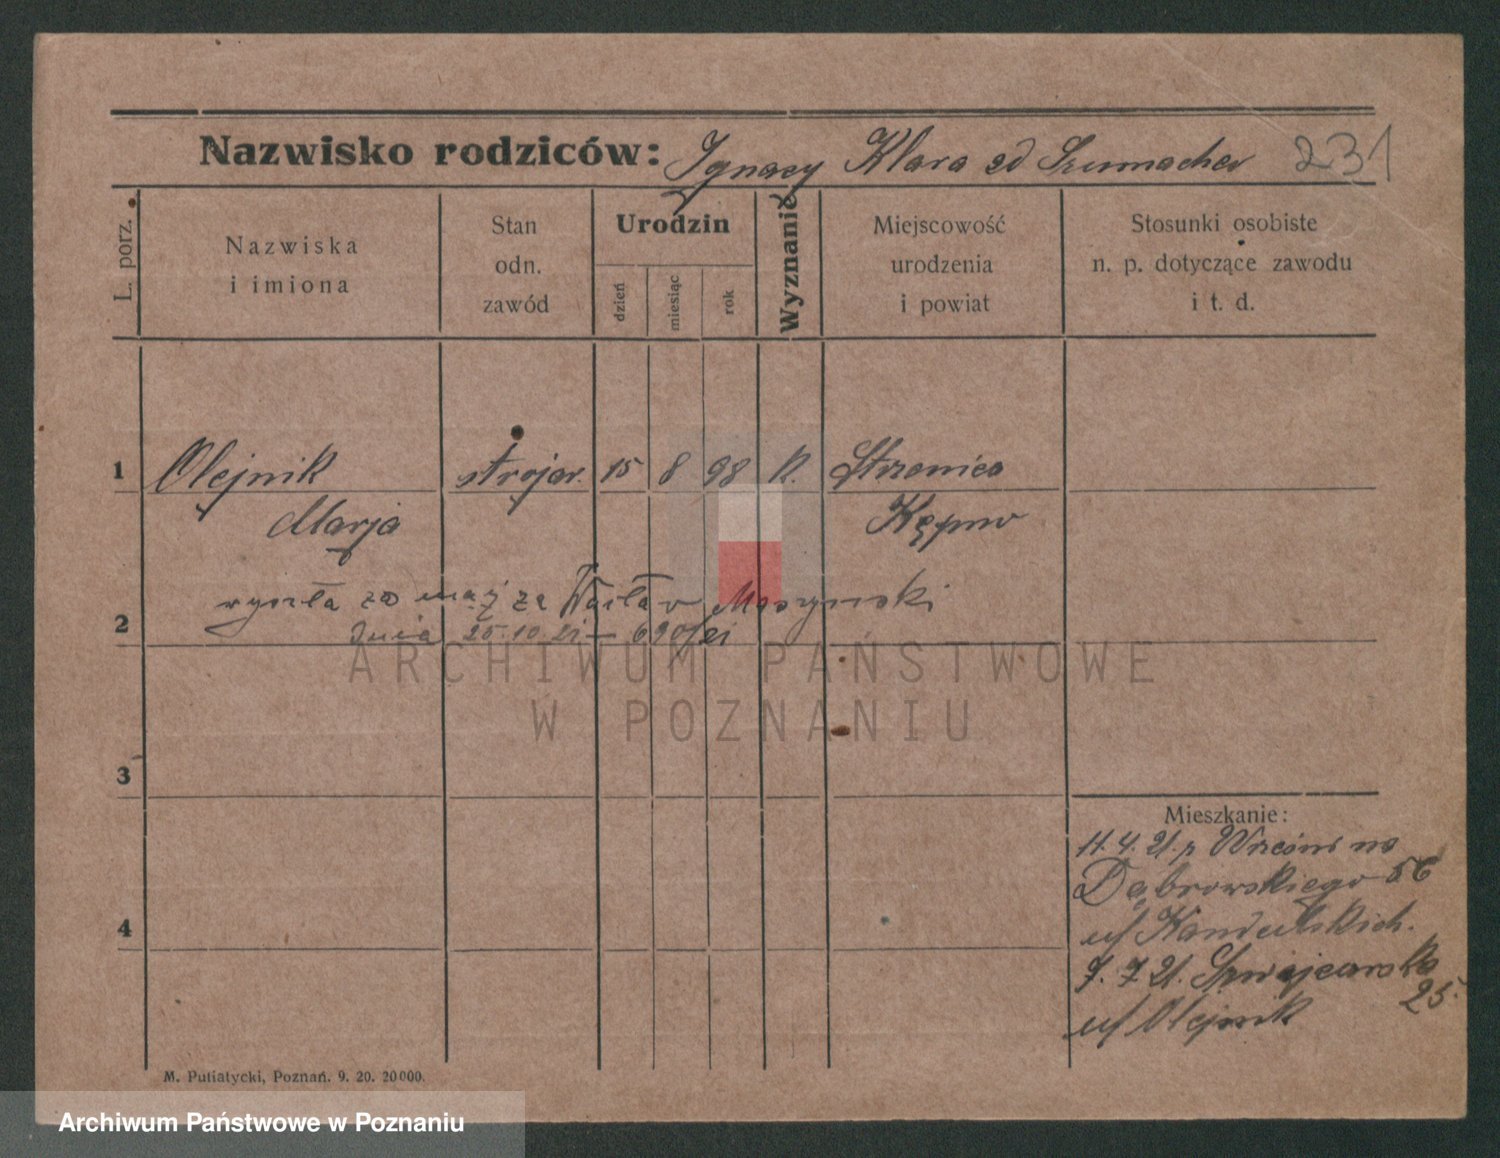 Nazwisko rodziców: Ignacy Klara zd Szumacher 231
L. porz.
Nazwiska i imiona
Stan odn. zawód
Urodzin
dzień
miesiąc
rok
Wyznanie
Miejscowość urodzenia i powiat
Stosunki osobiste n. p. dotyczące zawodu i t. d.
1 Olejnik 15 8 98 k.
Marja Kępno
wyszła za mąż za Wacław Moszyński
2 dnia 25.10.21 – 690/21
3
Mieszkanie:
11.4.21. z na
Dąbrowskiego 56
4 u/
7. 7 21. Szwajcarska
25.
u/ Olejnik
M. Putiatycki, Poznań. 9. 20. 20000.
ARCHIWUM PAŃSTWOWE
W POZNANIU
Archiwum Państwowe w Poznaniu